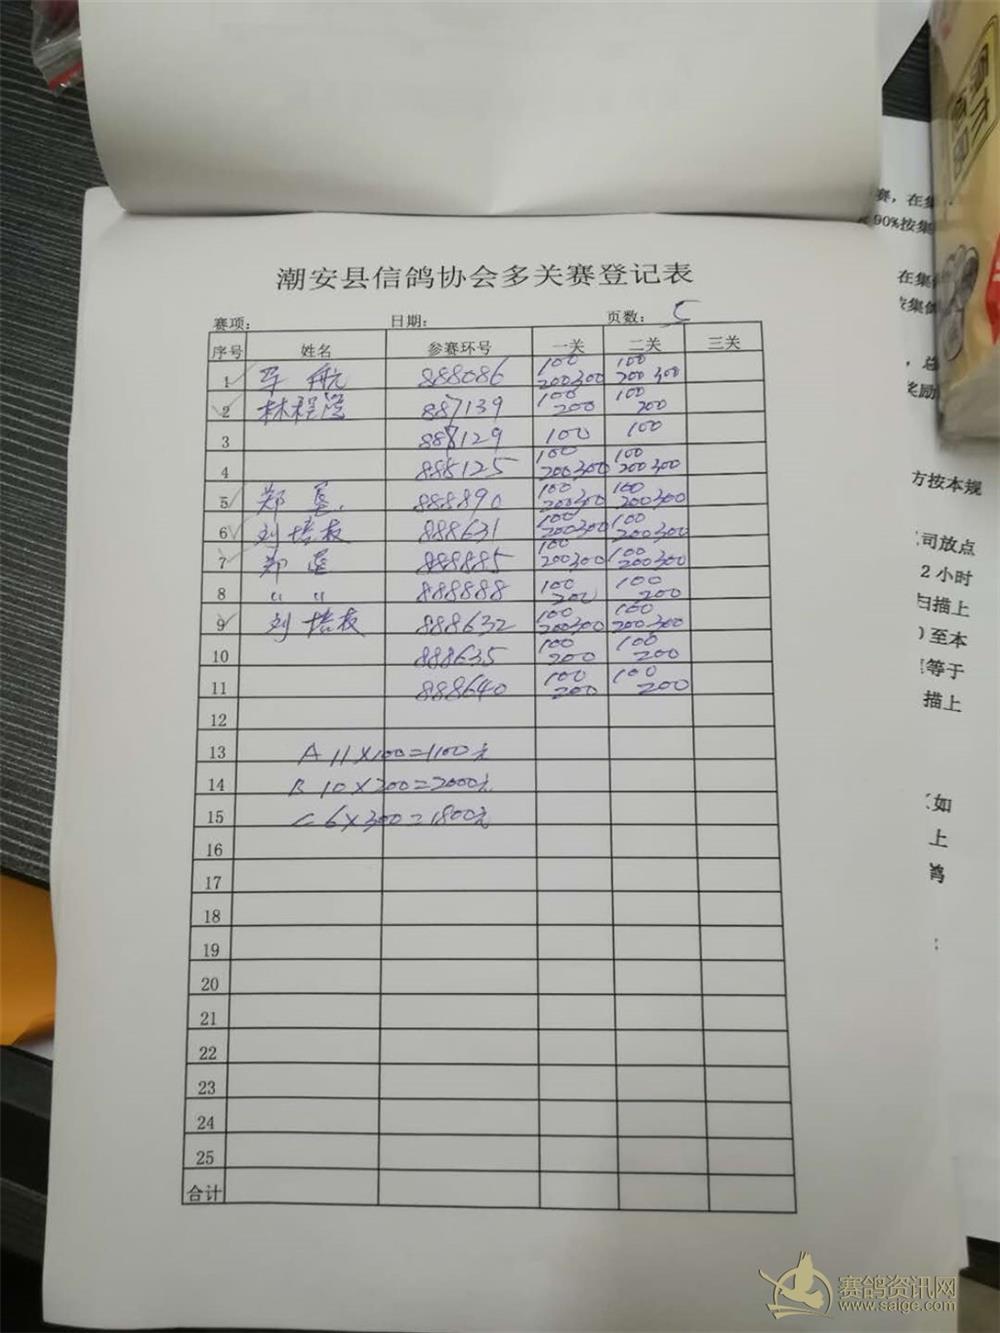 潮安县信鸽协会多关赛登记表
赛项: 日期: 页数: 5
序号 姓名 参赛环号 一关 二关 三关
1 航 888086 100 200 300 100 200 300
2 林程 887139 100 200 100 200
3 888129 100 100
4 888125 100 200 300 100 200 300
5 郑 888890 100 200 300 100 200 300
6 刘 888631 100 200 300 100 200 300
7 郑 888885 100 200 300 100 200 300
8 〃 〃 888888 100 200 100 200
9 刘 888632 100 200 300 100 200 300
10 888635 100 200 100 200
11 888640 100 200 100 200
12
13 A 11×100=1100元
14 B 10×200=2000元
15 C 6×300=1800元
16
17
18
19
20
21
22
23
24
25
合计
赛，在集
90%按集
在集
按集
，总
奖励
方按本规
司放点
2 小时
扫描上
至本
等于
描上
如
上
鸽
赛鸽资讯网
www.saige.com